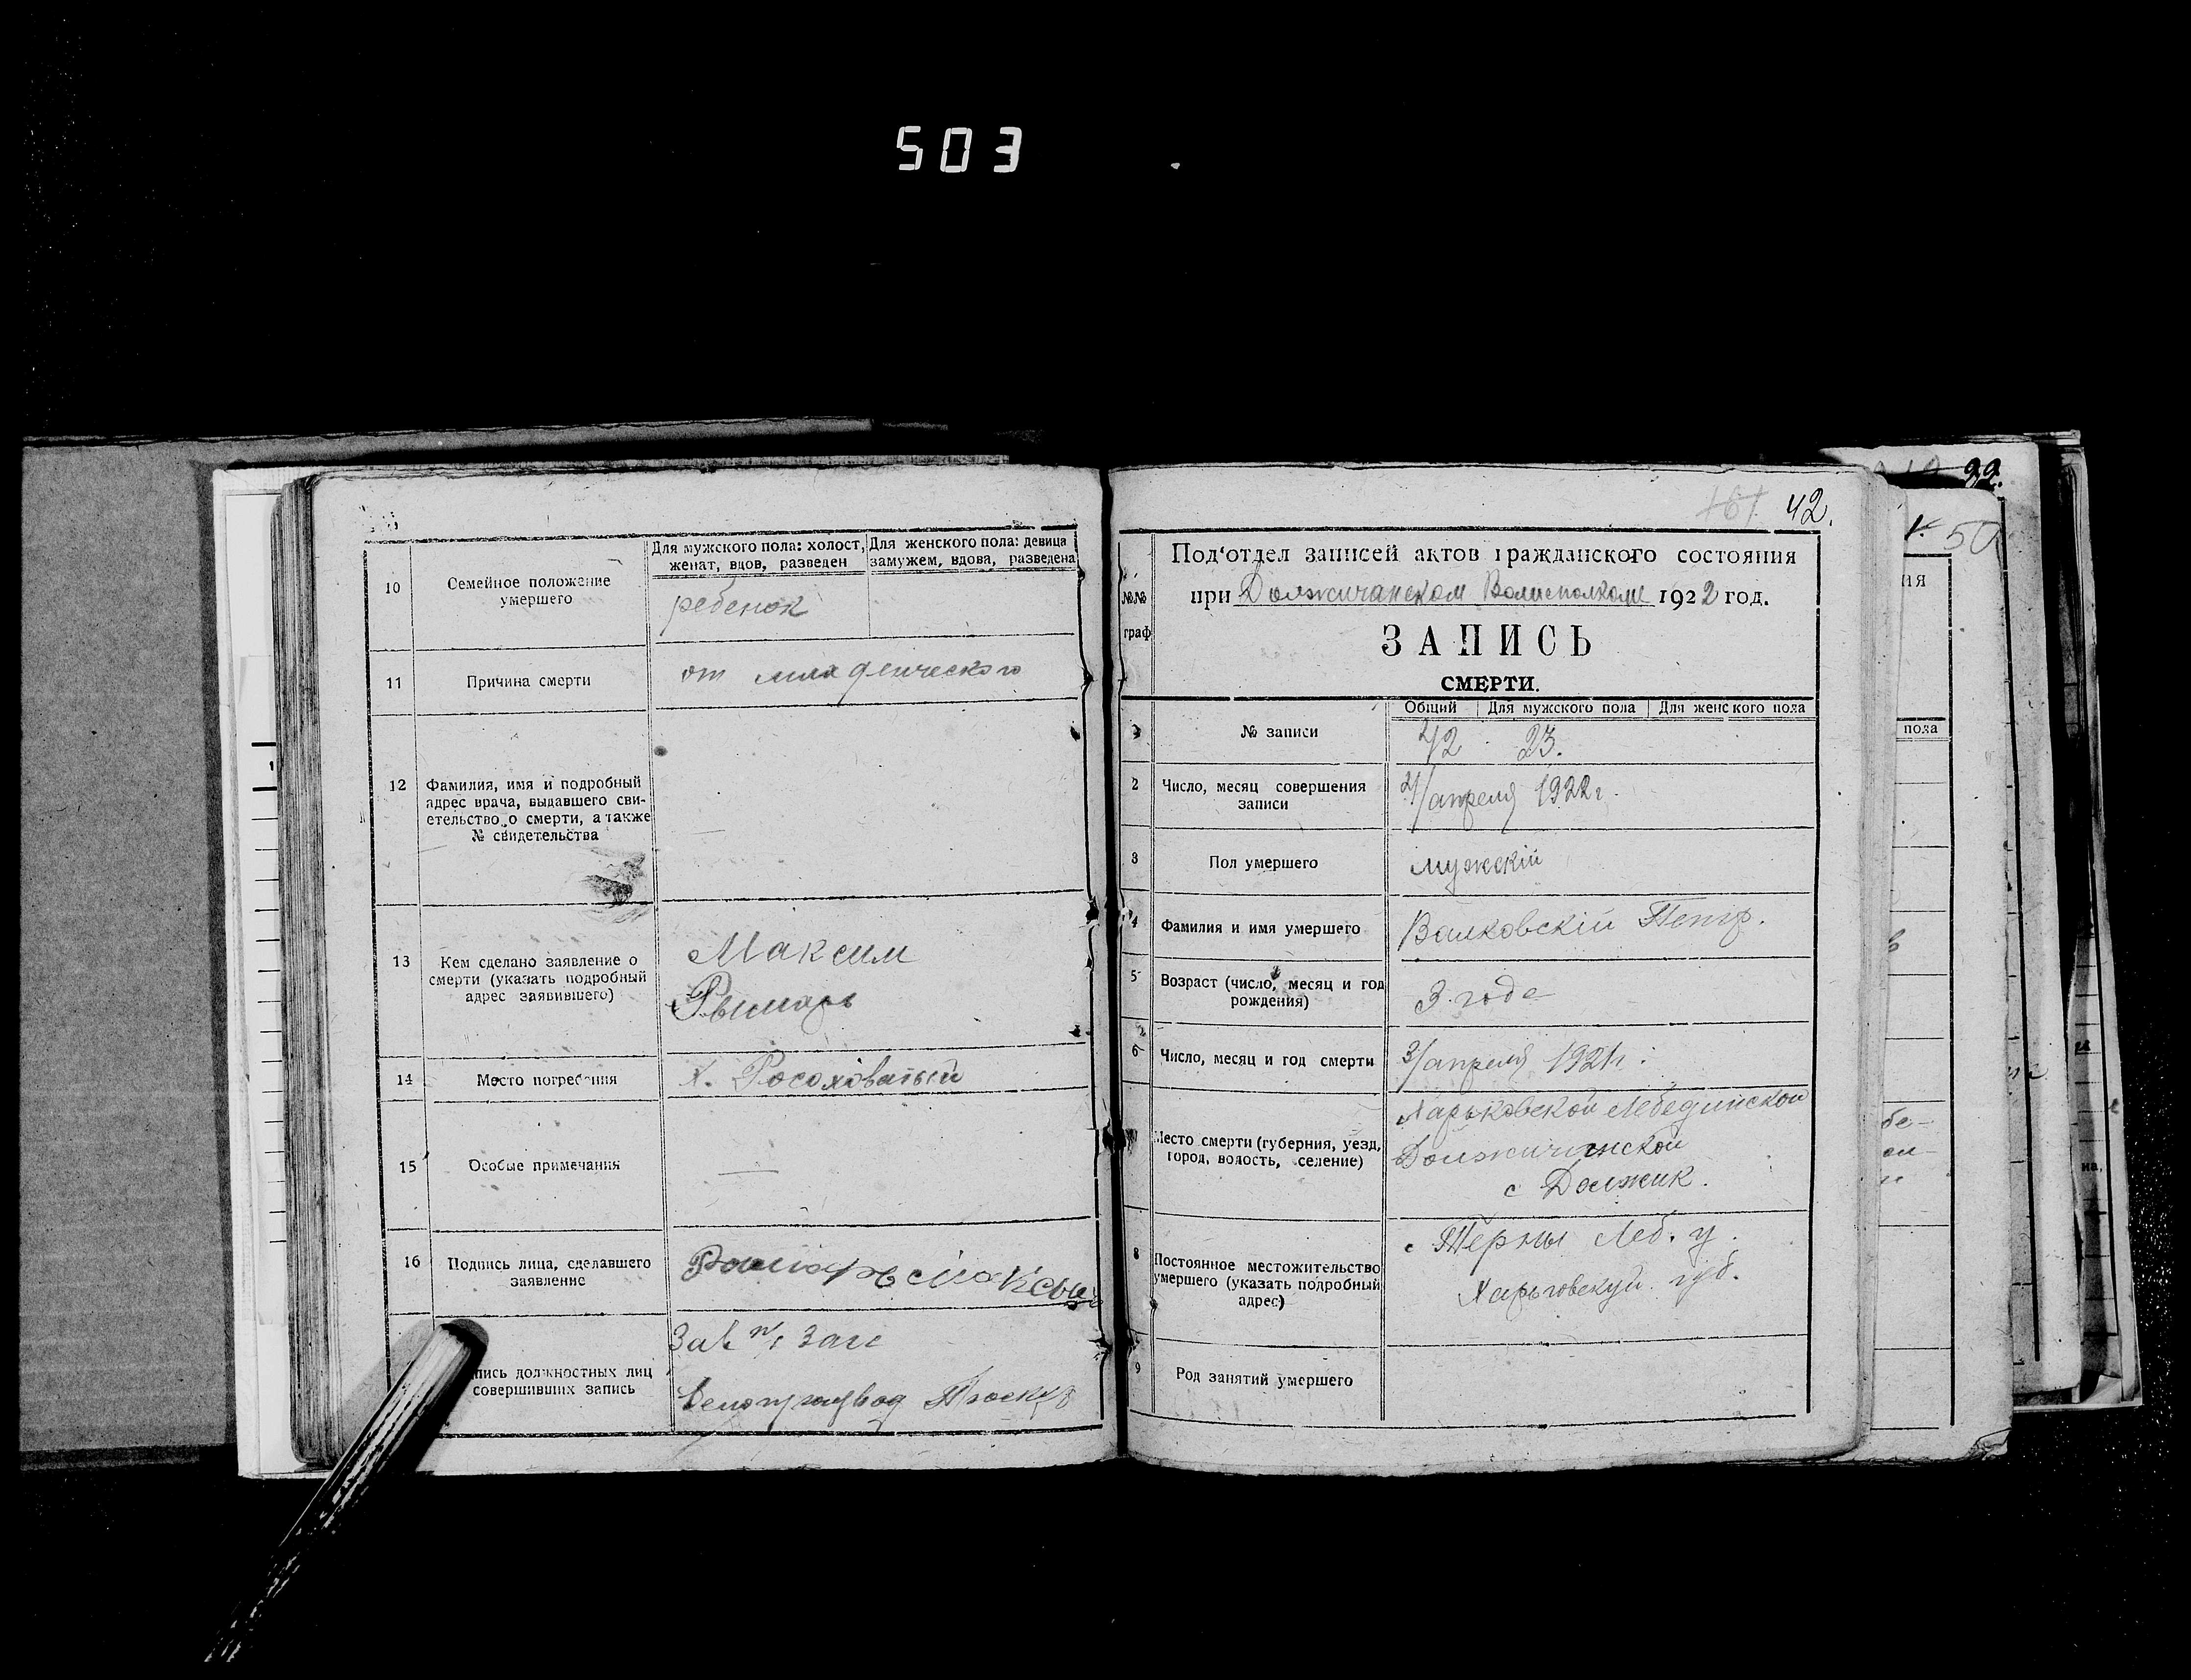 503
10
Семейное положение
умершего
Для мужского пола: холост,
женат, вдов, разведен
Для женского пола: девица
замужем, вдова, разведена
ребенок
11
Причина смерти
от младенческого
12
Фамилия, имя и подробный
адрес врача, выдавшего сви-
етельство о смерти, а также
№ свидетельства
13
Кем сделано заявление о
смерти (указать подробный
адрес заявившего)
Максим
Рымарь
14
Место погребения
х. Росоховатый
15
Особые примечания
—
16
Подпись лица, сделавшего
заявление
пись должностных лиц
совершивших запись
Зав п/ Загс
161 42.
№№
граф
Под'отдел записей актов гражданского состояния
при Должичанском Волисполкоме 1922 год.
ЗАПИСЬ
СМЕРТИ.
№ записи
Общий
Для мужского пола
Для женского пола
42 23.
2
Число, месяц совершения
записи
апреля 1922 г.
3
Пол умершего
мужскій
4
Фамилия и имя умершего
Валковскій Петр.
5
Возраст (число, месяц и год
рождения)
3 года
6
Число, месяц и год смерти
3/апреля
Место смерти (губерния, уезд,
город, волость, селение)
Харьковской Лебединской
Должичанской
с Должик.
8
Постоянное местожительство
умершего (указать подробный
адрес)
с Терны Леб. у.
Харьковской губ.
9
Род занятий умершего
99.
50
ия
пола
бе-